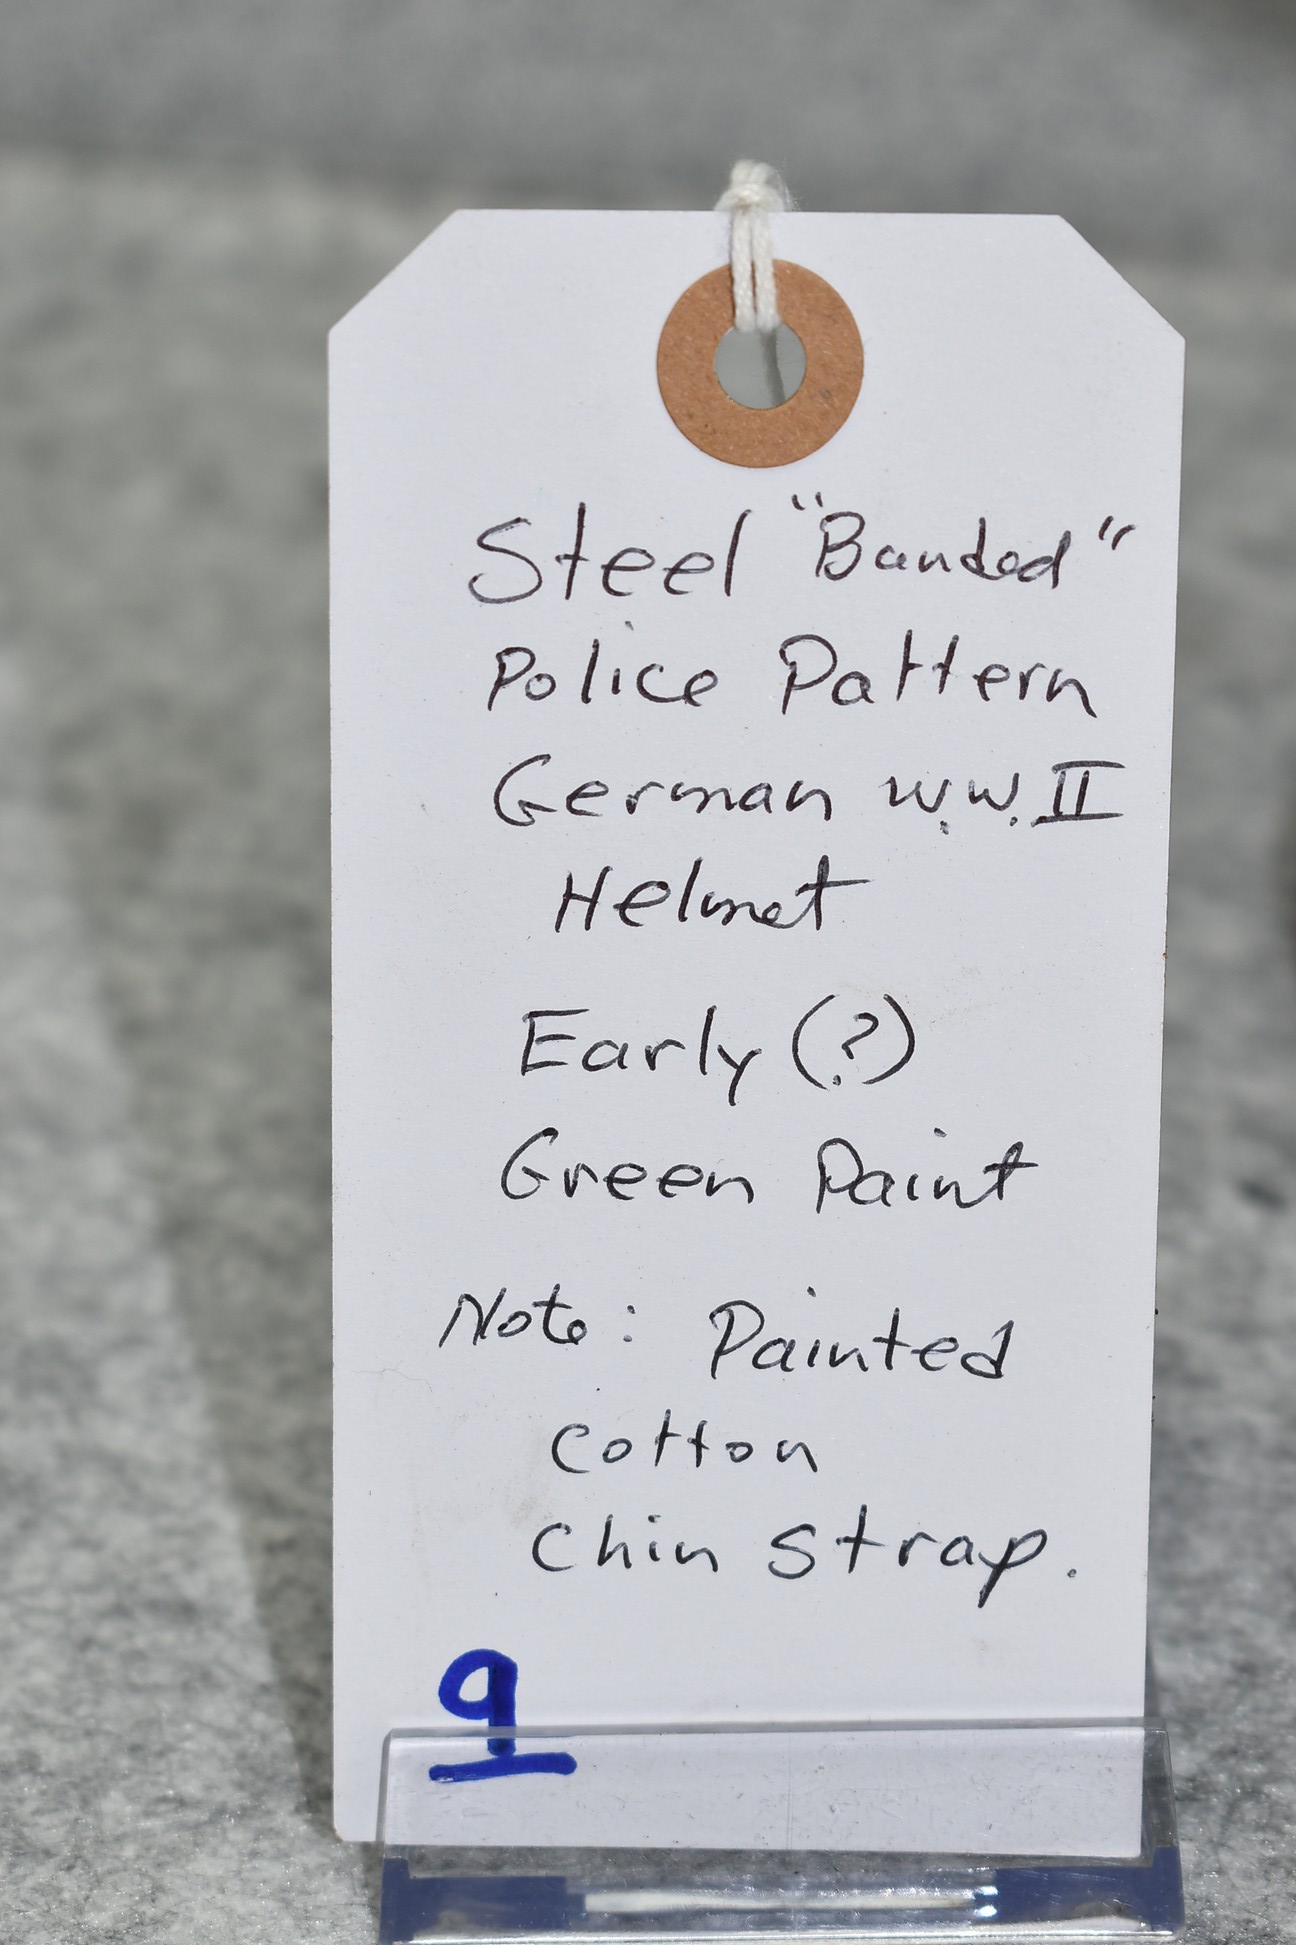 Steel "Banded"
Police Pattern
German W.W. II
Helmet
Early (?)
Green Paint
Note: Painted
cotton
chin strap.
9